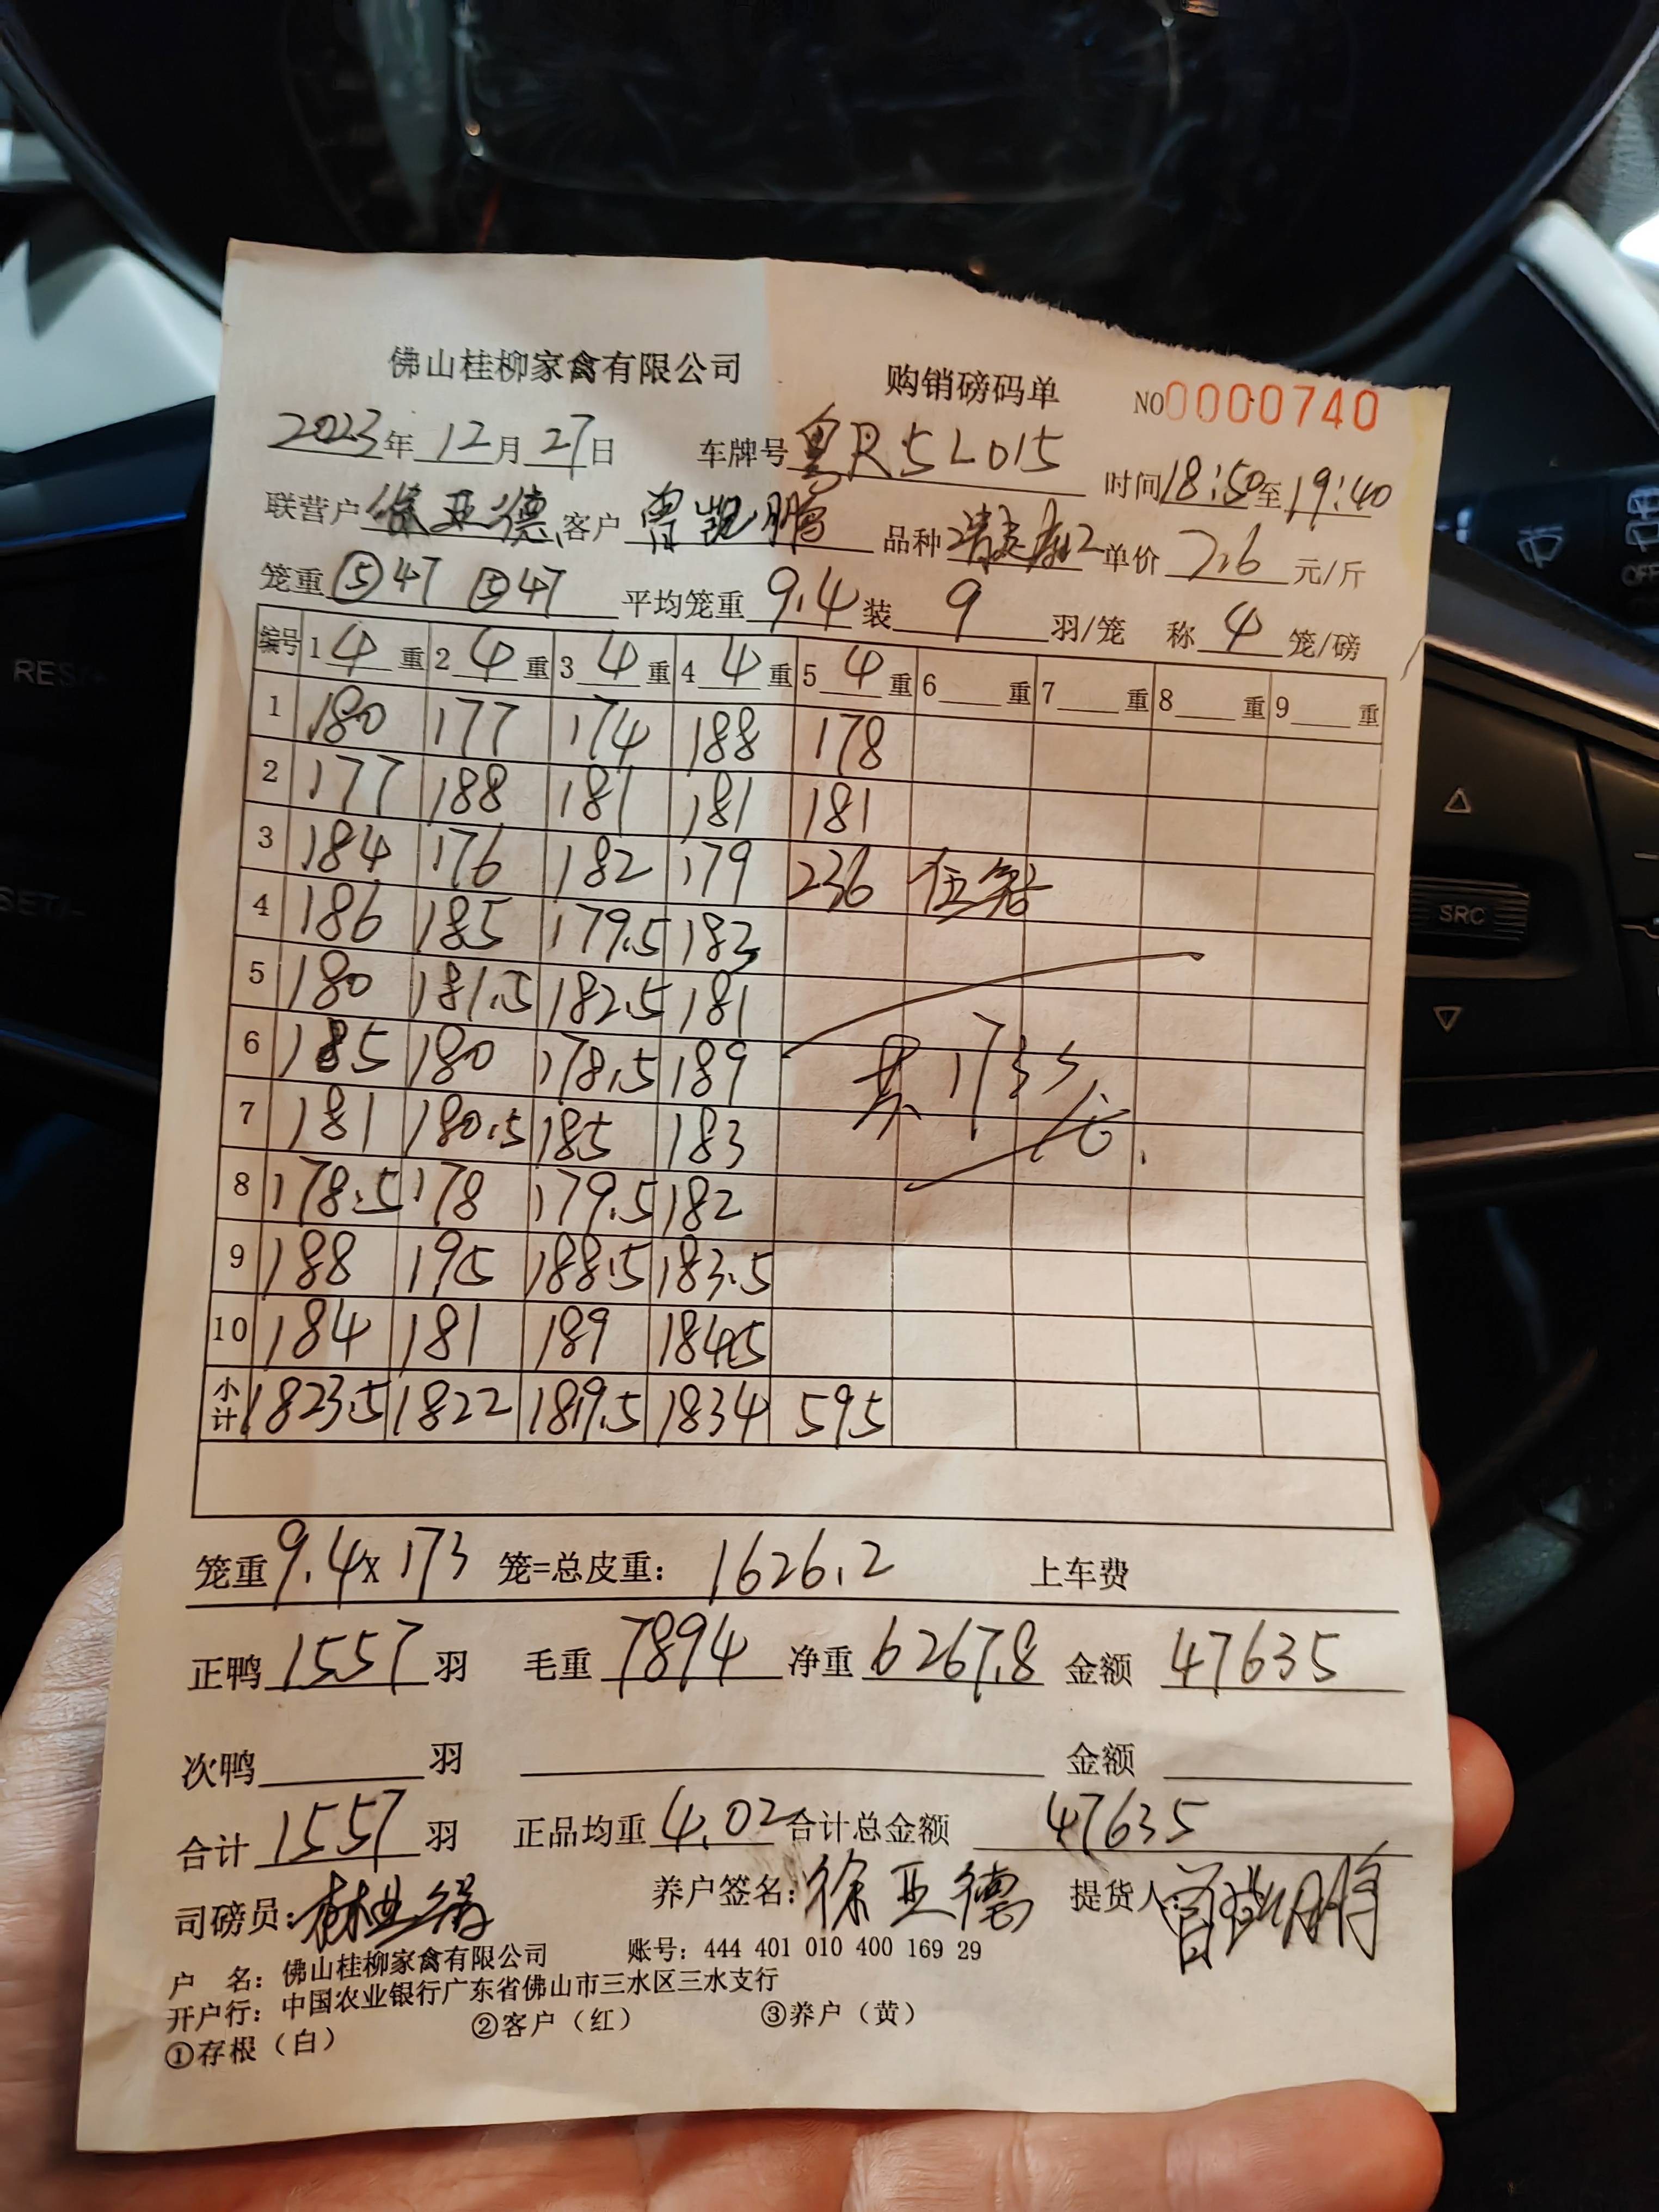 佛山桂柳家禽有限公司 购销磅码单 NO0000740
2023年12月27日 车牌号粤R5L015 时间18:50至19:40
联营户徐亚德 客户曾凯鹏 品种 单价7.6元/斤
笼重⑤47 ⑤47 平均笼重9.4装9羽/笼 称4笼/磅
编号 1 4 重 2 4 重 3 4 重 4 4 重 5 4 重 6 重 7 重 8 重 9 重
1 180 177 174 188 178
2 177 188 181 181 181
3 184 176 182 179 236 伍笼
4 186 185 179.5 183
5 180 181.5 182.5 181
6 185 180 178.5 189
7 181 180.5 185 183
共173笼.
8 178.5 178 179.5 182
9 188 195 188.5 183.5
10 184 181 189 184.5
小计 1823.5 1822 1819.5 1834 595
笼重9.4x173 笼=总皮重: 1626.2 上车费
正鸭1557羽 毛重7894 净重6267.8 金额 47635
次鸭 羽 金额
合计1557羽 正品均重4.02 合计总金额 47635
司磅员: 养户签名:徐亚德 提货人:曾凯鹏
户 名: 佛山桂柳家禽有限公司 账号: 444 401 010 400 169 29
开户行: 中国农业银行广东省佛山市三水区三水支行
①存根(白) ②客户(红) ③养户(黄)
RES/+
SET/-
SRC
OFF